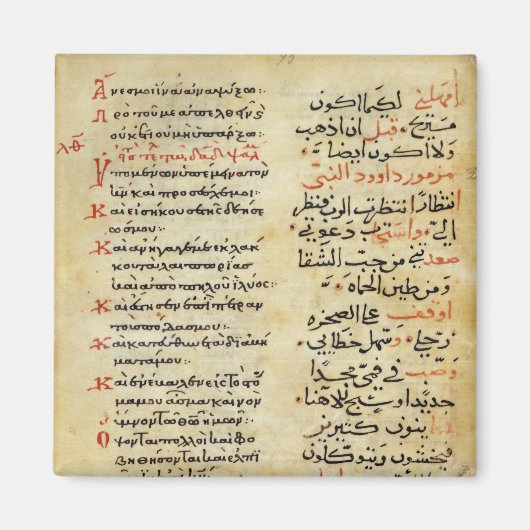 Ἄνες μοι ἵνα ἀναψύξω:
πρὸ τοῦ με ἀπελθεῖν ϗ
οὐκέτι οὐ μὴ ὑπάρξω:
λθ
Ὑπομένων ὑπέμεινα τὸν
κν καὶ προσέσχε μοι:
Καὶ εἰσήκουσε τῆς δεήσε
ώς μου:
Καὶ ἀνήγαγέ με ἐκ λάκ
κου ταλαιπωρίας
καὶ ἀπὸ πηλοῦ ἰλύος:
Καὶ ἔστησεν ἐπὶ πέτραν
τοὺς πόδας μου:
Καὶ κατεύθυνε τὰ διαβή
ματά μου:
Καὶ ἐνέβαλεν εἰς τὸ στό
μα μου ᾆσμα καινὸν
ὕμνον τῷ θῷ ἡμῶν:
Ὄψονται πολλοὶ καὶ φο
βηθήσονται καὶ ἐλπι
امهلني لكيما اكون
مستريح قبل ان اذهب
ولا اكون ايضا
مزمور داوود النبي
انتظارا انتظرت الرب فنظر
الي دعوتي
من جب الشقا
ومن طين الحماه
اوقف على الصخره
رجلي وسهل خطايي
وصب في فمي مجدا
جديدا وتسبيح لالاهنا
كثيرين
فيخشون ويتوكلون